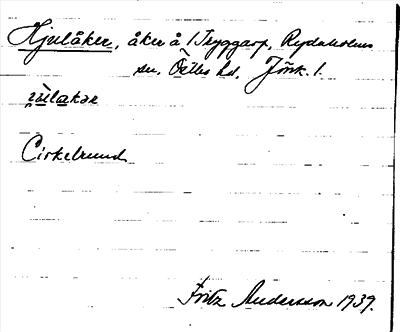 Hjulåker, åker å 1 Tryggarp, Rydaholms
sn, Östbo hd, Jönk. l.
Cirkelrund
Fritz Andersson 1939.